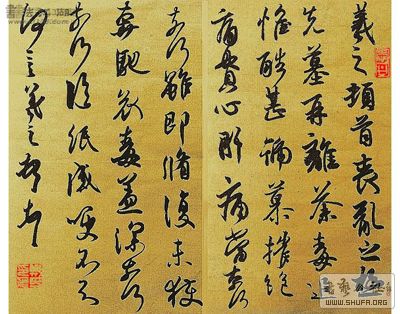 羲之頓首喪亂之極
先墓再離荼毒追
惟酷甚號慕摧絕
痛貫心肝痛當奈何
奈何雖即脩復未獲
奔馳哀毒益深奈何
奈何臨紙感哽不知
何言羲之頓首頓首
WWW.SHUFA.ORG